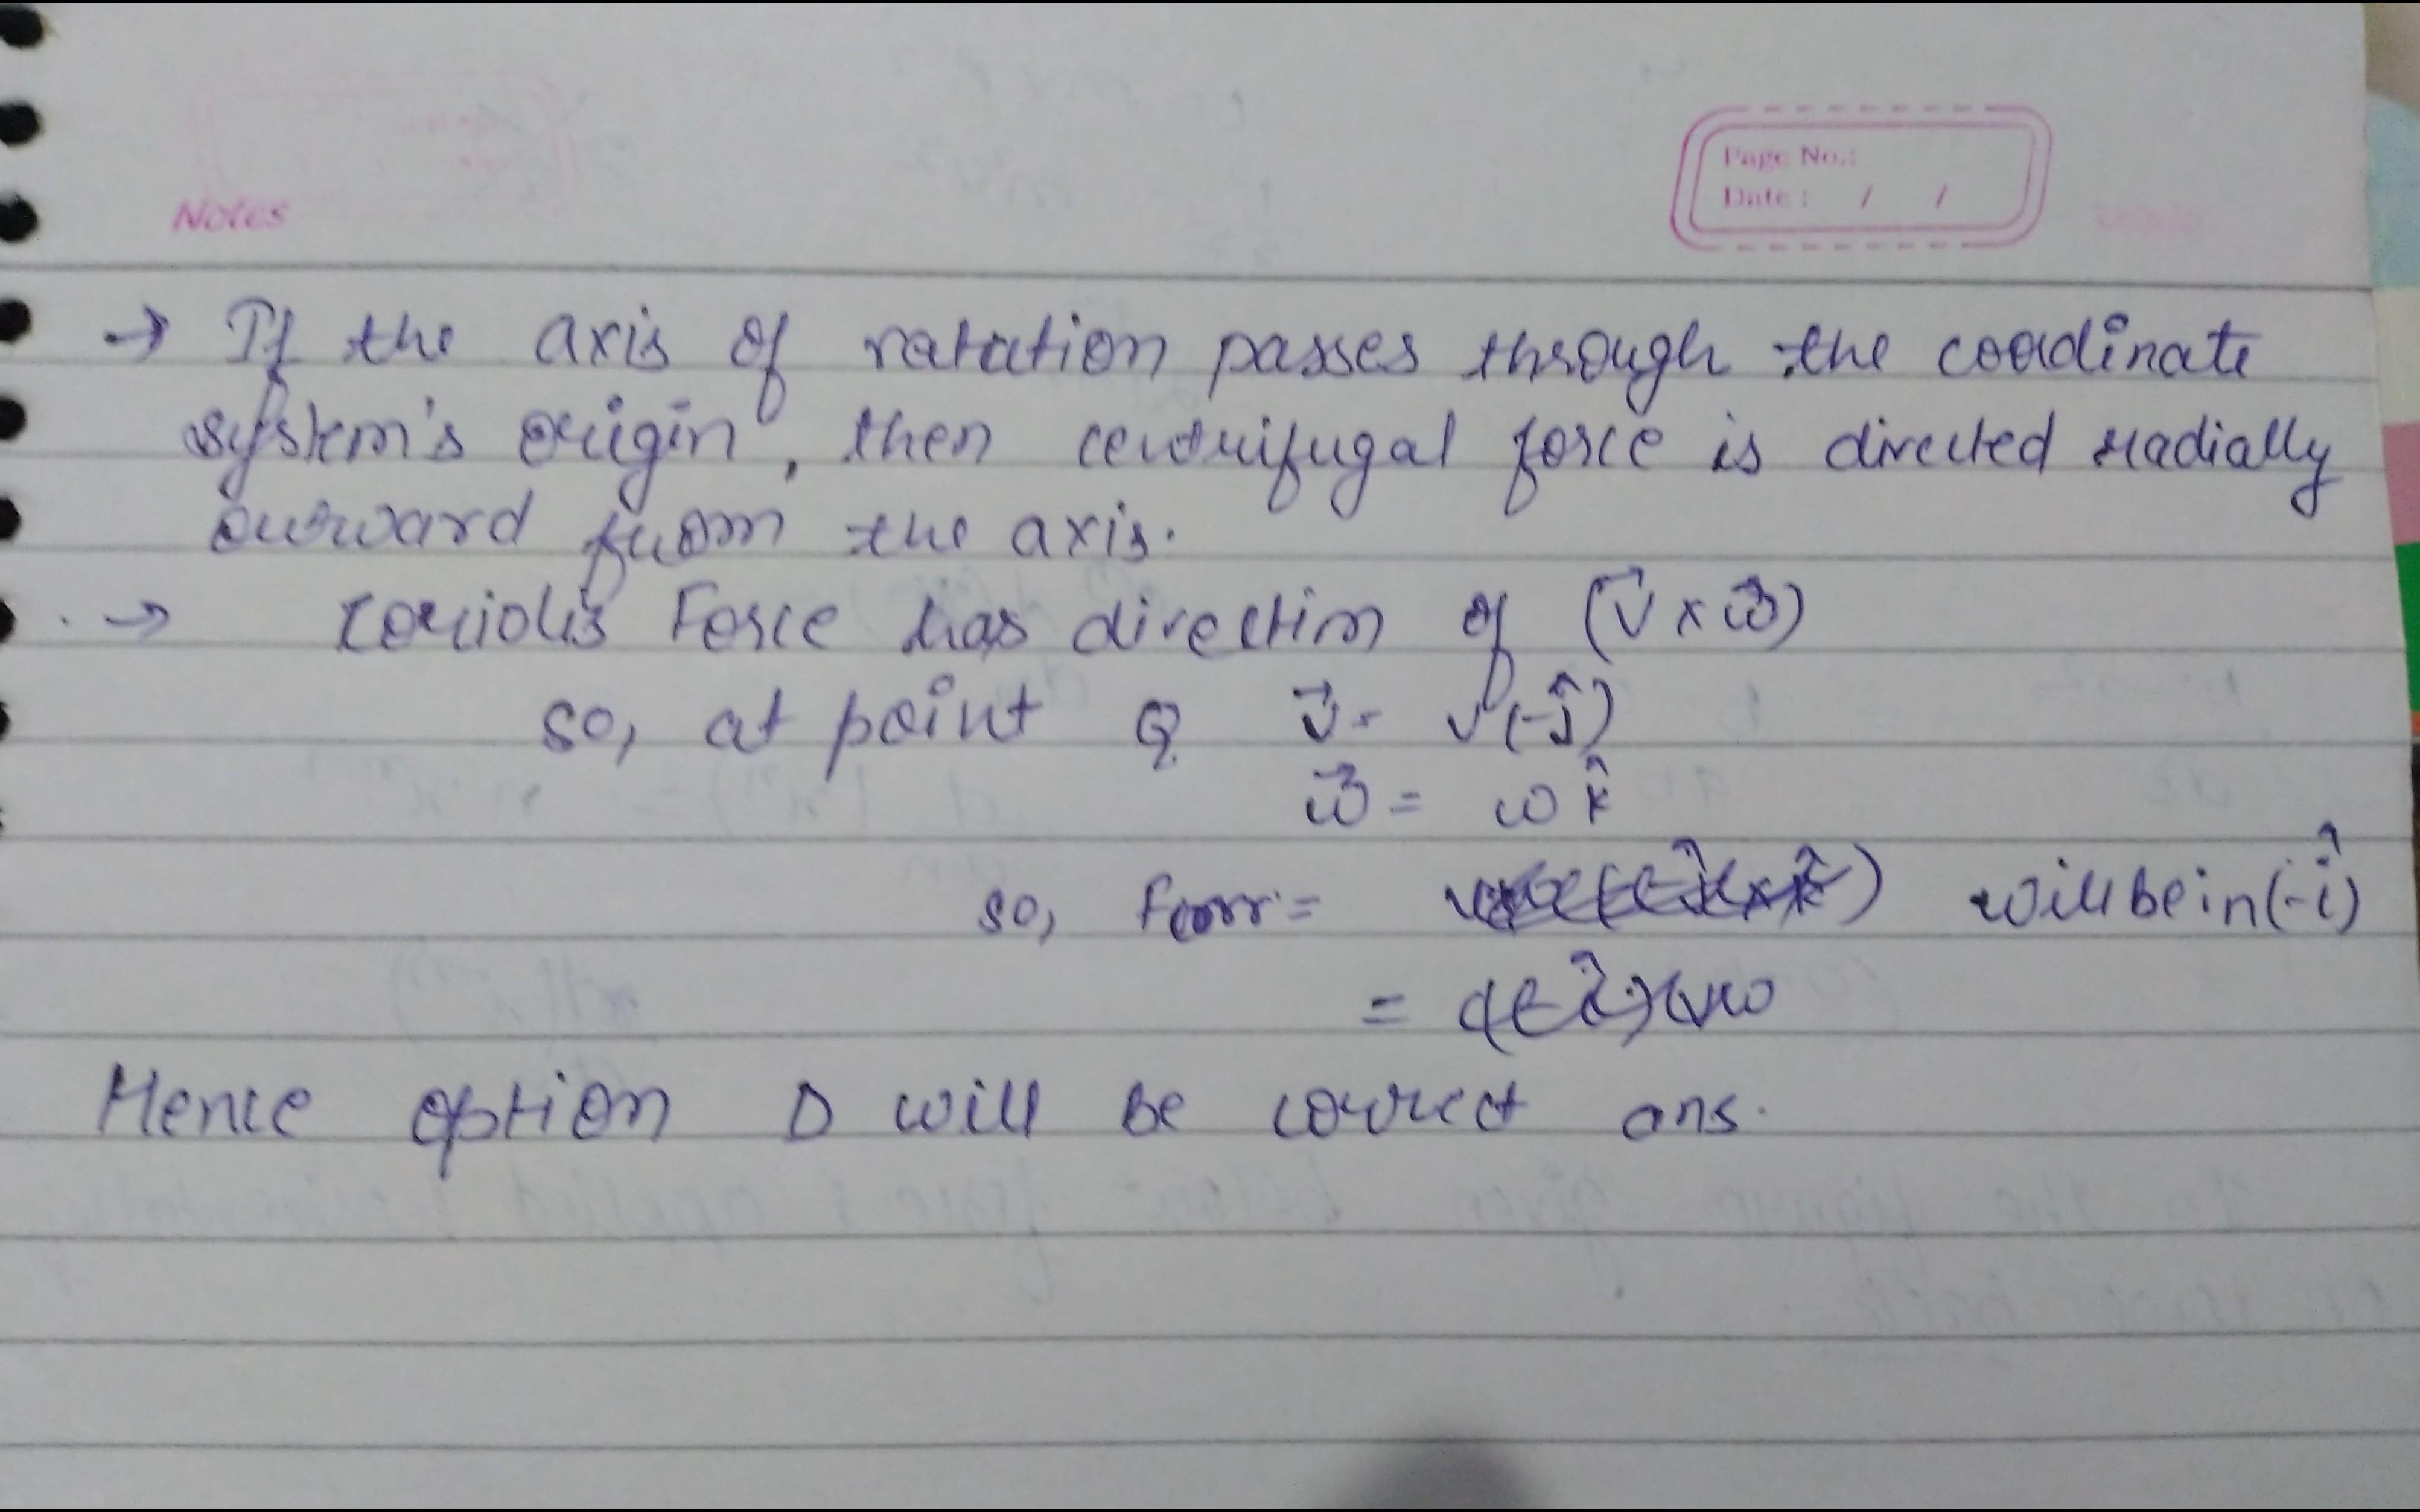 Page No.:
Date : / /
Notes
→ If the axis of rotation passes through the coordinate
system's origin, then centrifugal force is directed radially
outward from the axis.
→ Coriolis Force has direction of (v⃗ × ω⃗)
so, at point Q v⃗ = v(-ĵ)
ω⃗ = ω k̂
so, Fcorr = will be in (-î)
=
Hence option D will be correct ans.